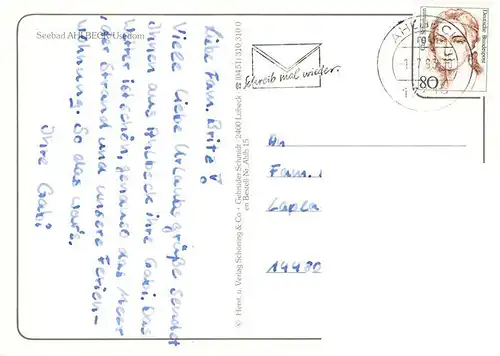 Seebad AHLBECK/Usedom
Liebe Fam. Britz!
Viele liebe Urlaubsgrüße sendet
Ihnen aus Ahlbeck ihre Gabi. Das
Wetter ist schön, genauso das Meer
der Strand und unsere Ferien-
wohnung. So das war's.
Ihre Gabi
© Herst. u. Verlag Schöning & Co · Gebrüder Schmidt · 2400 Lübeck · ☎ (0451) 310 310 0
Bestell-Nr. Ahlb 15
Schreib mal wieder.
AHLBECK
Deutsche Bundespost
80
An
Fam.
14480